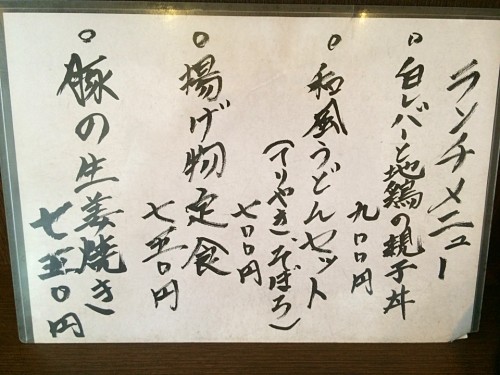 ランチメニュー
○白レバーと地鶏の親子丼
九〇〇円
○和風うどんセット
(てりやき、そぼろ)
七〇〇円
○揚げ物定食
七五〇円
○豚の生姜焼き
七五〇円